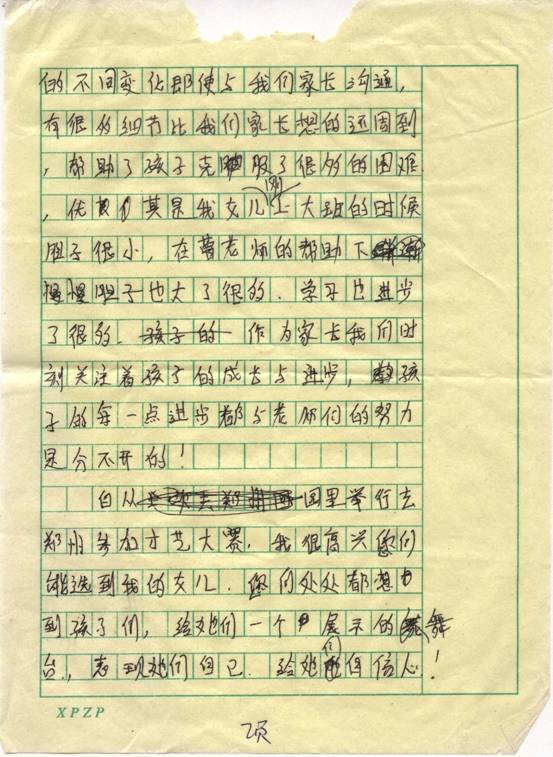 的不同变化即使与我们家长沟通，
有很多细节比我们家长想的还周到
，帮助了孩子克服了很多的困难
，优其是我女儿刚上大班的时候
胆子很小，在曹老师的帮助下
慢慢胆子也大了很多．学习也进步
了很多．孩子的 作为家长我们时
刻关注着孩子的成长与进步，孩
子的每一点进步都与老师们的努力
是分不开的！
自从园里举行去
郑州参加才艺大赛，我很高兴您们
能选到我的女儿．您们处处都想
到孩子们，给她们一个展示的舞
台．，表现她们自己．给她们自信心！
XPZP
2页